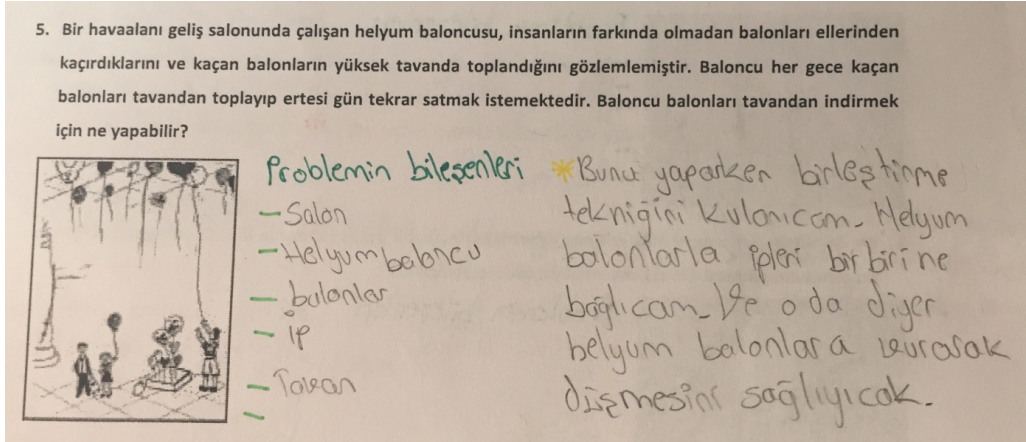 5. Bir havaalanı geliş salonunda çalışan helyum baloncusu, insanların farkında olmadan balonları ellerinden
kaçırdıklarını ve kaçan balonların yüksek tavanda toplandığını gözlemlemiştir. Baloncu her gece kaçan
balonları tavandan toplayıp ertesi gün tekrar satmak istemektedir. Baloncu balonları tavandan indirmek
için ne yapabilir?
Problemin bileşenleri
- Salon
- Helyum baloncu
- balonlar
- ip
- Tavan
-
*Bunu yaparken birleştirme
tekniğini kulanıcam. Helyum
balonlarla ipleri birbirine
bağlıcam. Ve o da diğer
helyum balonlara vurarak
düşmesini sağlıyıcak.